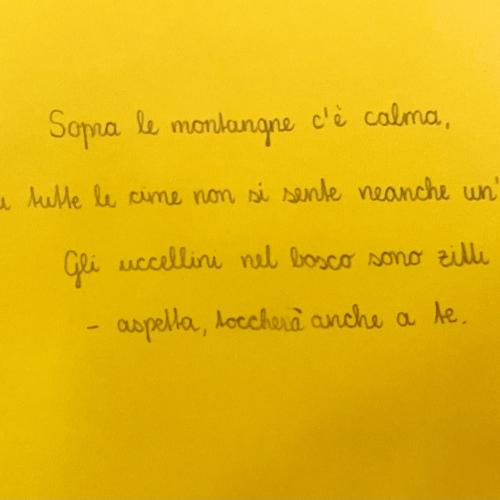 Sopra le montangne c'è calma,
tutte le cime non si sente neanche un'
Gli uccellini nel bosco sono zilli
- aspetta, toccherà anche a te.